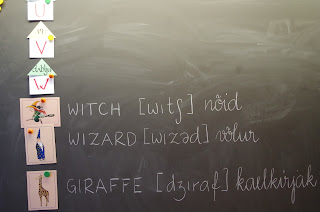 U
V
W
WITCH [witʃ] nõid
WIZARD [wizəd] võlur
GIRAFFE [dʒiraf] kaelkirjak